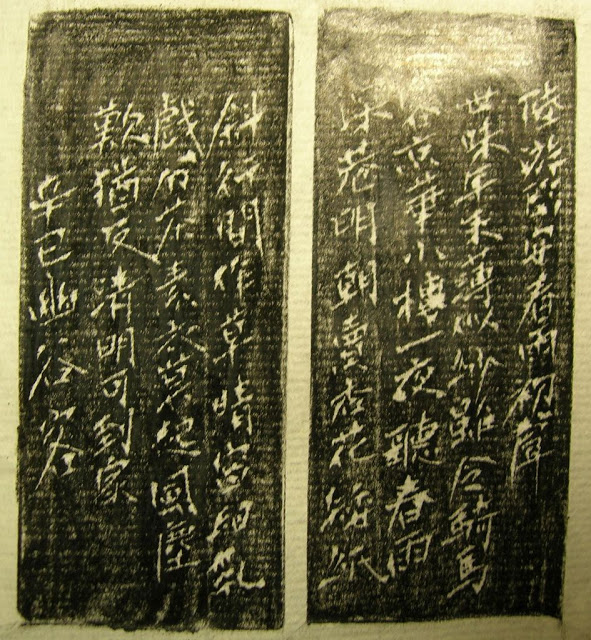 陸游臨安春雨初
世味年來薄似紗誰令騎馬
客京華小樓一夜聽春雨
深巷明朝賣杏花矮紙
斜行閒作草晴窗細乳
戲分茶素衣莫起風塵
歎猶及清明可到家
辛巳幽谷